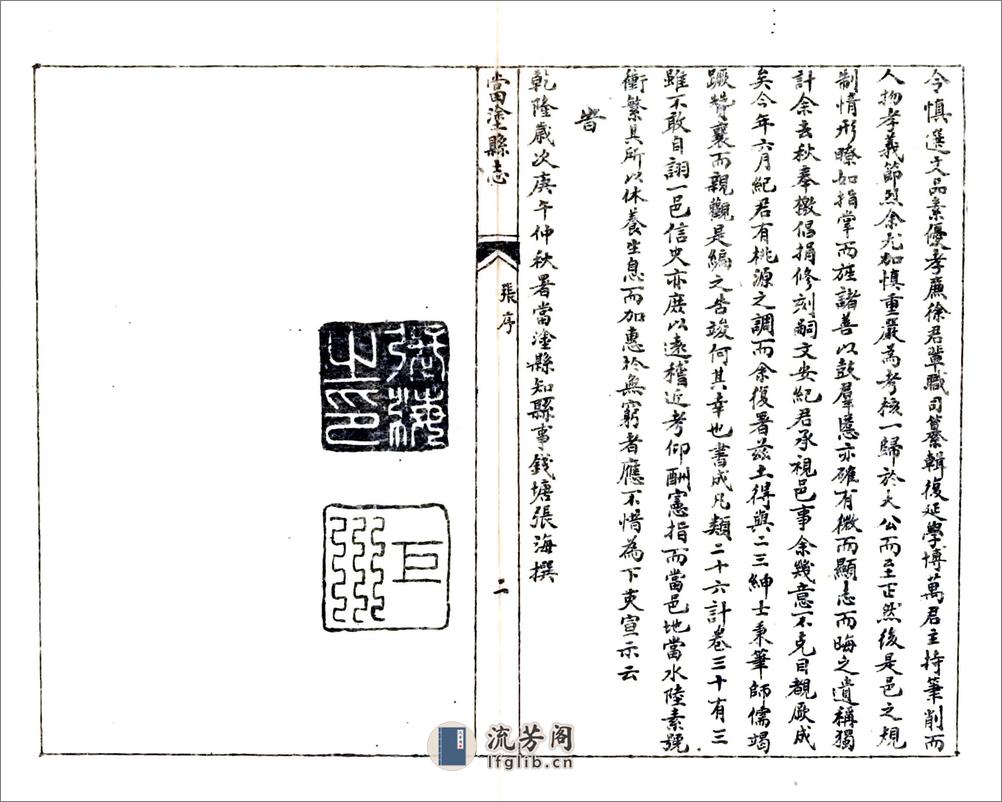 令慎選文品素優孝廉徐君輩職司纂輯復延學博萬君主持筆削而
人物孝義節烈余尤加慎重嚴為考核一歸於大公而至正然後是邑之規
制情形瞭如指掌而旌諸善以鼓羣慝亦確有微而顯志而晦之遺稱獨
計余去秋奉檄倡捐修刻嗣文安紀君承視邑事余幾意不克目覩厥成
矣今年六月紀君有桃源之調而余復署茲土得與二三紳士秉筆師儒竭
蹶贊襄而親觀是編之告竣何其幸也書成凡類二十六計卷三十有三
雖不敢自詡一邑信史亦庶以遠稽近考仰酬憲指而當邑地當水陸素號
衝繁其所以休養生息而加惠於無窮者應不惜為下吏宣示云
旹
乾隆歲次庚午仲秋署當塗縣知縣事錢塘張海撰
當塗縣志
張序
二
張海之印
流芳阁
lfglib.cn